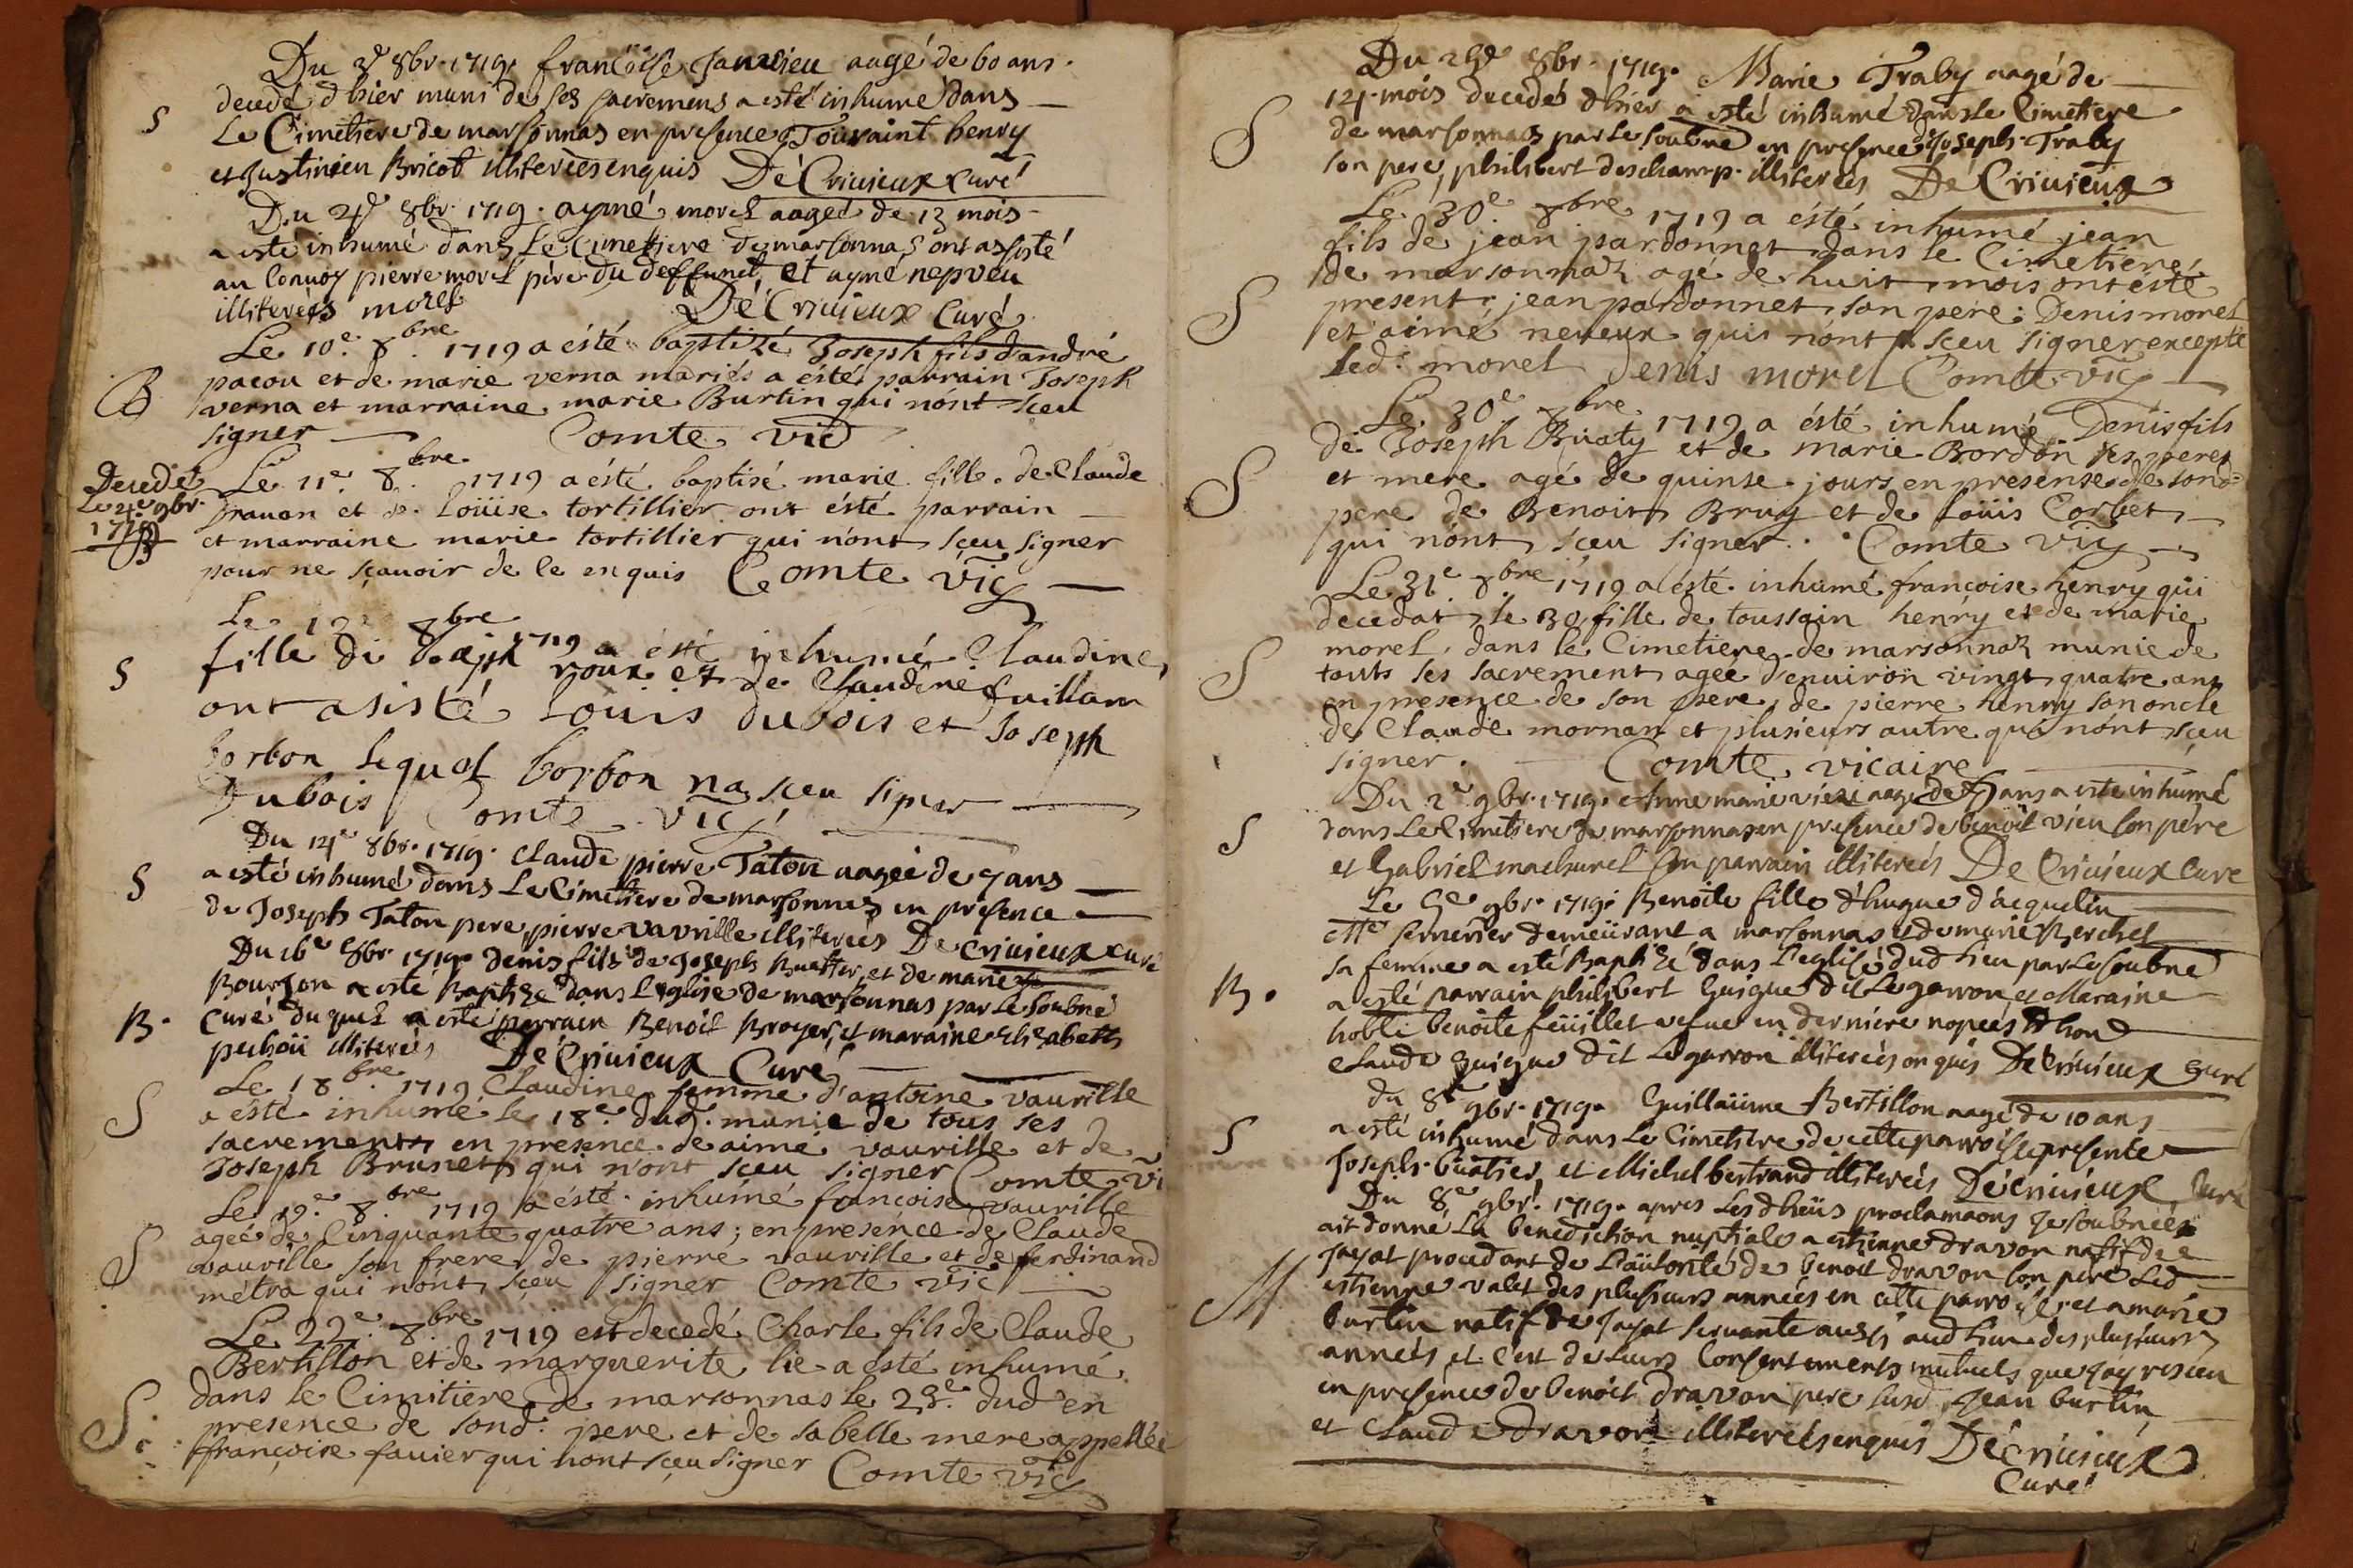 Du 3e 8br. 1719. françoise Janvieu aagé de 60 ans.
decedé d'hier muni de ses sacremens a esté inhumé dans
S
le Cimetiere de marsonnas en presence Toussaint henry
et Justinien Bricot illiterées enquis De Crivieux Curé
Du 4e 8br. 1719. aymé morel aagée de 13 mois
a esté inhumé dans le Cimetiere de marsonnas ont assisté
au Convoy pierre morel père du deffunct, et aymé nepveu
illiterées morel De Crivieux Curé
Le 10e. 8bre. 1719 a ésté baptizé Joseph fils d'andré
pacou et de marie verna mariés a ésté parrain Joseph
B
verna et marraine marie Burtin qui n'ont sceu
signer Comte vic
Decedée
Le 4e 9br.
1719
B
Le 11e. 8bre. 1719 a ésté baptisé marie fille de Claude
Dravon et de Loüise tortillier ont ésté parrain
et marraine marie tortillier qui n'ont sçeu signer
pour ne sçavoir de ce enquis Comte vic
Le 8bre 1719 a ésté inhumé Claudine
S
fille di Joseph roux et de Claudine
ont asisté Louis dubois et Joseph
borbon lequel borbon na sceu signer
Dubois Comte vic
Du 14e 8br. 1719. Claude pierre Taton aagée de 7 ans
S
a esté inhumé dans Le Cimetiere de marsonnas en presence
de Joseph Taton pere, pierre vavrille illiterées De Crivieux curé
Du 16e 8br. 1719. denis fils de Joseph et de marie
Bourdon a esté Baptizé dans L'eglise de marsonnas par le soubné
B.
Curé duquel a esté parrain Benoit Broyer, et maraine Elizabeth
illiterées De Crivieux Curé
Le 18 bre. 1719 Claudine femme d'antoine vaurille
S
a ésté inhumé le 18e. dud. munie de tous ses
sacrements en presence de aimé vaurille et de
Joseph Brunet qui n'ont sceu signer Comte vi
Le 19e. 8bre 1719 a ésté inhumé françoise vaurille
agée de Cinquante quatre ans; en presence de Claude
S
vaurille son frere, de pierre vaurille et de ferdinand
métra qui n'ont sçeu signer Comte vic
Le 22e. 8bre. 1719 est decedé Charle fils de Claude
Bertillon et de marguerite lie a ésté inhumé
dans le Cimitiere de marsonnas le 23e. dud en
S
presence de sond. pere et de sa belle mere appellée
françoise favier qui n'ont sçeu signer Comte vic
Du 29e 8br. 1719. Marie Traby aagé de
S
14 mois decedé d'hier a esté inhumé dans le Cimetiere
de marsonnas par le soubné en presence de Joseph Traby
son pere, philibert deschamp. illiterées De Crivieux
Le 30e. 8bre 1719 a ésté inhumé jean
fils de jean pardonnet dans le Cimetiere
S
de marsonnaz agé de huit mois ont esté
present, jean pardonnet son pere; Denis morel
et aimé neveux quis n'ont sceu signer excepté
led. morel Denis morel Comte vic
Le 30e. 8bre 1719 a ésté inhumé Denis fils
de Joseph Buaty et de marie Bordon ses peres
S
et mere agé de quinse jours en presense de sond
pere de Benoit Bruy et de Loüis Corbet
qui n'ont sceu signer. Comte vic
Le 31e 8bre 1719 a ésté inhumé françoise henry qui
decedat le 30, fille de toussain henry et de marie
S
morel, dans le Cimetiere de marsonnaz munie de
touts ses sacrement agée d'environ vingt quatre ans
en presence de son pere, de pierre henry son oncle
de Claude mornan et plusieurs autre qui n'ont sceu
signer. Comte vicaire
Du 2e 9br. 1719. Anne marie vieu aagé de ans a esté inhumé
S
dans Le Cimetiere de marsonnas en presence de benoit vieu son père
et Gabriel machurel son parrain illiterées De Crivieux Curé
Le 5e 9br. 1719. Benoite fille d'hugue d'acquelin
Me serrurier demeürant a marsonnas et de marie Berchet
sa femme a esté Baptizé dans L'eglise dud lieu par le soubné
B.
a esté parrain philibert Guigue dit Legarron, et Maraine
hoble benoite feüillet vefve en derniere nopces d'hon
Claude Guigue dit Legarron illiterées enquis De Crivieux Curé
du 8e 9br. 1719. Guillaüme Bertillon aagé de 10 ans
S
a esté inhumé dans Le Cimetiere de cette parroisse presente
Joseph buatier, et Michel bertrand illiterées De Crivieux Curé
Du 8e 9br. 1719. apres Les d'heüs proclamaons Je soubnée
ait donné La benediction nuptiale a etienne dravon natif de
Jayat procedant de L'autorité de benoit dravon son père Led
M
etienne valet des plusieurs années en cette parroisse, et a marie
burtin natif de Jayat servante aussi aud lieu des plusieurs
années et c'est de leurs Consentements mutuels que jay reseu
en presence de benoit dravon pere susd, Jean burtin
et Claude dravon illiterées enquis De Crivieux
Curé